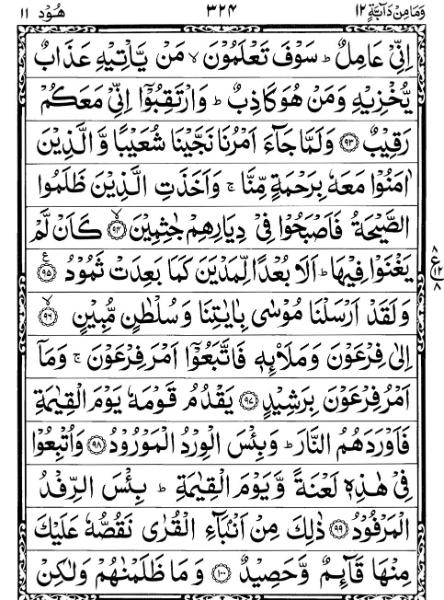 وَمَا مِنْ دَآبَّةٍ ١٢ ٣٢٤ هُوْد ١١
اِنِّیْ عَامِلٌ ؕ سَوْفَ تَعْلَمُوْنَ ۙ مَنْ یَّاْتِیْهِ عَذَابٌ
یُّخْزِیْهِ وَمَنْ هُوَ كَاذِبٌ ؕ وَارْتَقِبُوْۤا اِنِّیْ مَعَكُمْ
رَقِیْبٌ ۝۹۳ وَلَمَّا جَآءَ اَمْرُنَا نَجَّیْنَا شُعَیْبًا وَّالَّذِیْنَ
اٰمَنُوْا مَعَهٗ بِرَحْمَةٍ مِّنَّا ۚ وَاَخَذَتِ الَّذِیْنَ ظَلَمُوا
الصَّیْحَةُ فَاَصْبَحُوْا فِیْ دِیَارِهِمْ جٰثِمِیْنَ ۝۹۴ۙ كَاَنْ لَّمْ
یَغْنَوْا فِیْهَا ؕ اَلَا بُعْدًا لِّمَدْیَنَ كَمَا بَعِدَتْ ثَمُوْدُ ۝۹۵ ع
۸ ع ۱۲ ۸
وَلَقَدْ اَرْسَلْنَا مُوْسٰی بِاٰیٰتِنَا وَسُلْطٰنٍ مُّبِیْنٍ ۝۹۶ۙ
اِلٰی فِرْعَوْنَ وَمَلَا۟ئِهٖ فَاتَّبَعُوْۤا اَمْرَ فِرْعَوْنَ ۚ وَمَاۤ
اَمْرُ فِرْعَوْنَ بِرَشِیْدٍ ۝۹۷ یَقْدُمُ قَوْمَهٗ یَوْمَ الْقِیٰمَةِ
فَاَوْرَدَهُمُ النَّارَ ؕ وَبِئْسَ الْوِرْدُ الْمَوْرُوْدُ ۝۹۸ وَاُتْبِعُوْا
فِیْ هٰذِهٖ لَعْنَةً وَّیَوْمَ الْقِیٰمَةِ ؕ بِئْسَ الرِّفْدُ
الْمَرْفُوْدُ ۝۹۹ ذٰلِكَ مِنْ اَنْۢبَآءِ الْقُرٰی نَقُصُّهٗ عَلَیْكَ
مِنْهَا قَآئِمٌ وَّحَصِیْدٌ ۝۱۰۰ وَمَا ظَلَمْنٰهُمْ وَلٰكِنْ